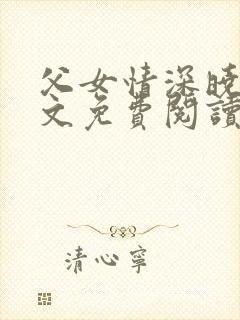 父女情深晓
文免費閱讀
清心寧